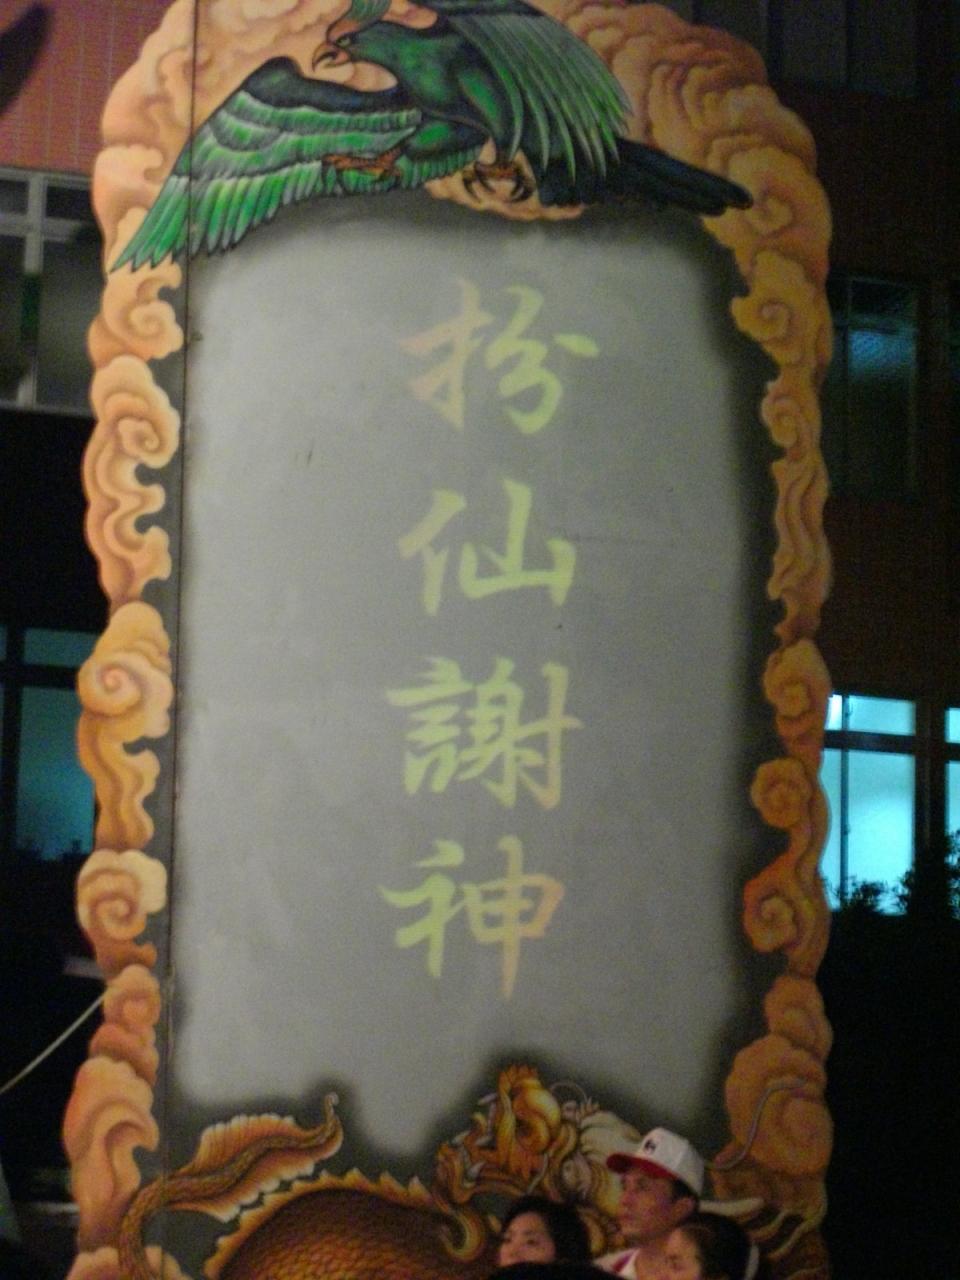 扮仙謝神